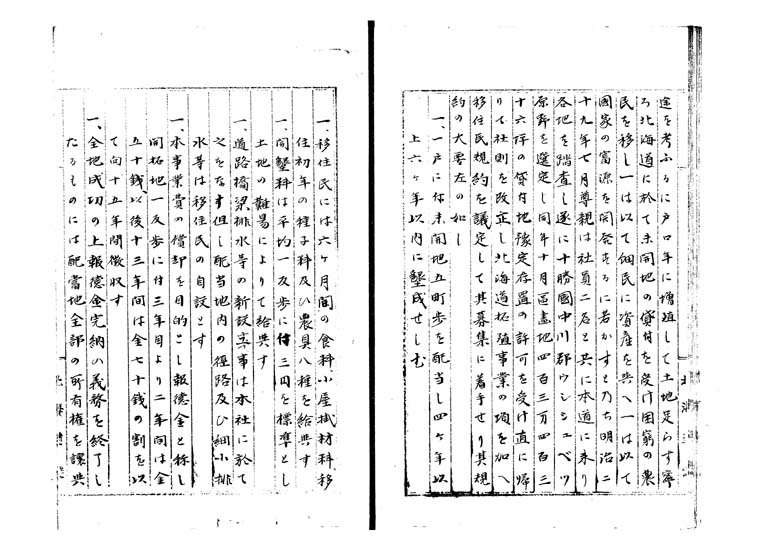 途を考ふるに戸口年に増殖して土地足らす寧
ろ北海道に於て未開地の貸付を受け困窮の農
民を移し一は以て細民に資産を與へ一は以て
國家の富源を開発するに若かすと乃ち明治二
十九年七月尊親は社員二名と共に本道に来り
各地を踏査し遂に十勝國中川郡ウシシュベツ
原野を選定し同年十月區畫地四百三万四百三
十六坪の貸付地豫定存置の許可を受け直に帰
りて社則を改正し北海道拓殖事業の項を加へ
移住民規約を議定して其募集に着手せり其規
約の大要左の如し
一、一戸に付未開地五町歩を配当し四ヶ年以
上六ヶ年以内に墾成せしむ
一、移住民には六ヶ月間の食料小屋掛材料移
住初年の種子料及ひ農具八種を給与す
一、開墾料は平均一反歩に付三円を標準とし
土地の難易によりて給与す
一、道路橋梁排水等の新設工事は本社に於て
之をなす但し配当地内の徑路及ひ細小排
水等は移住民の自設とす
一、本事業費の償却を目的とし報徳金と称し
開拓地一反歩に付三年目より二年間は金
五十銭以後十三年間は金七十銭の割を以
て向十五年間徴收す
一、全地成功の上報徳金完納の義務を終了し
たるものには配當地全部の所有權を譲與